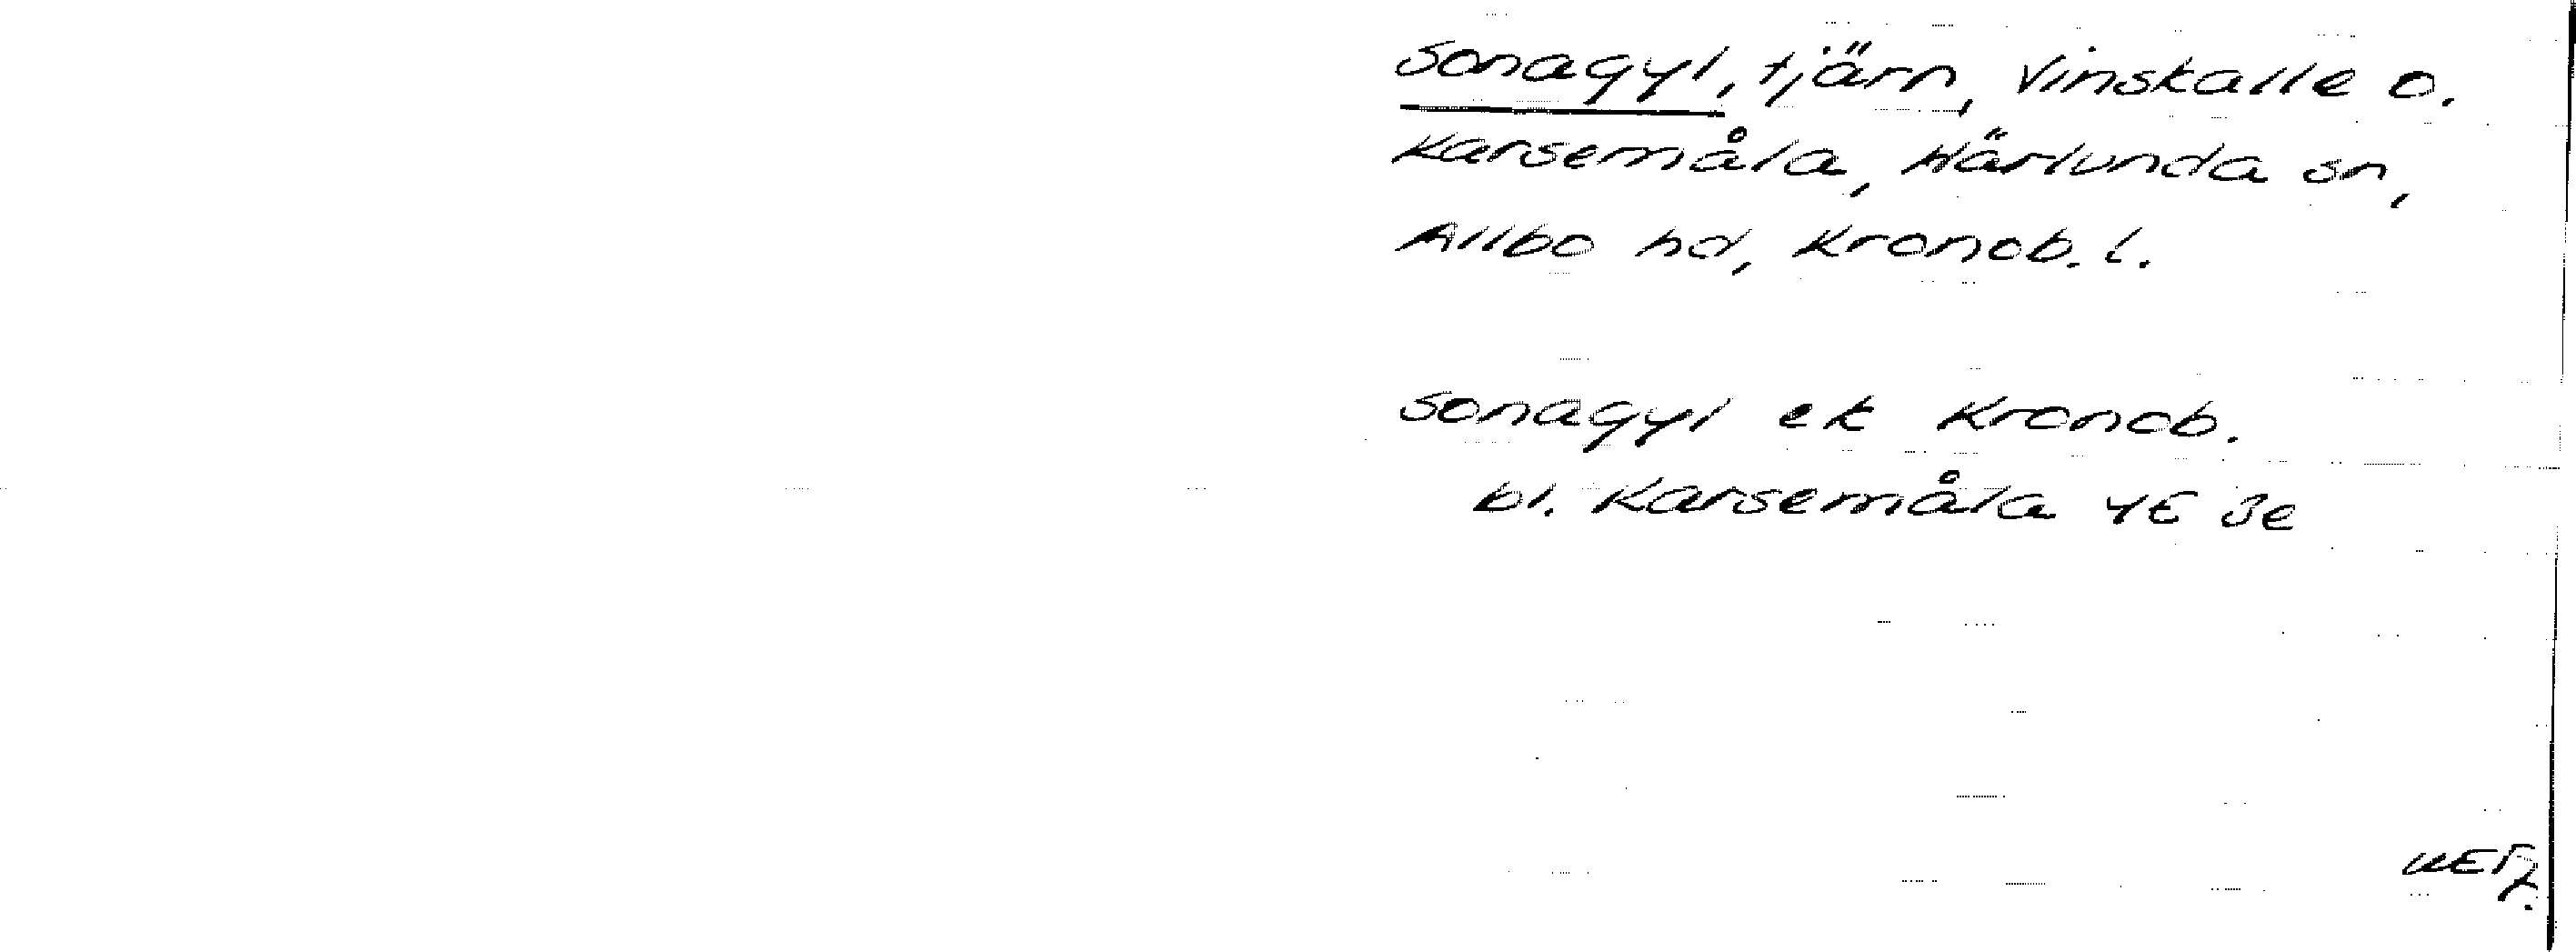 Sonagyl, tjärn, Vinskalle o.
Karsemåla, Härlunda sn,
Allbo hd, Kronob. l.
Sonagyl ek Kronob.
bl. Karsemåla 4E 3e